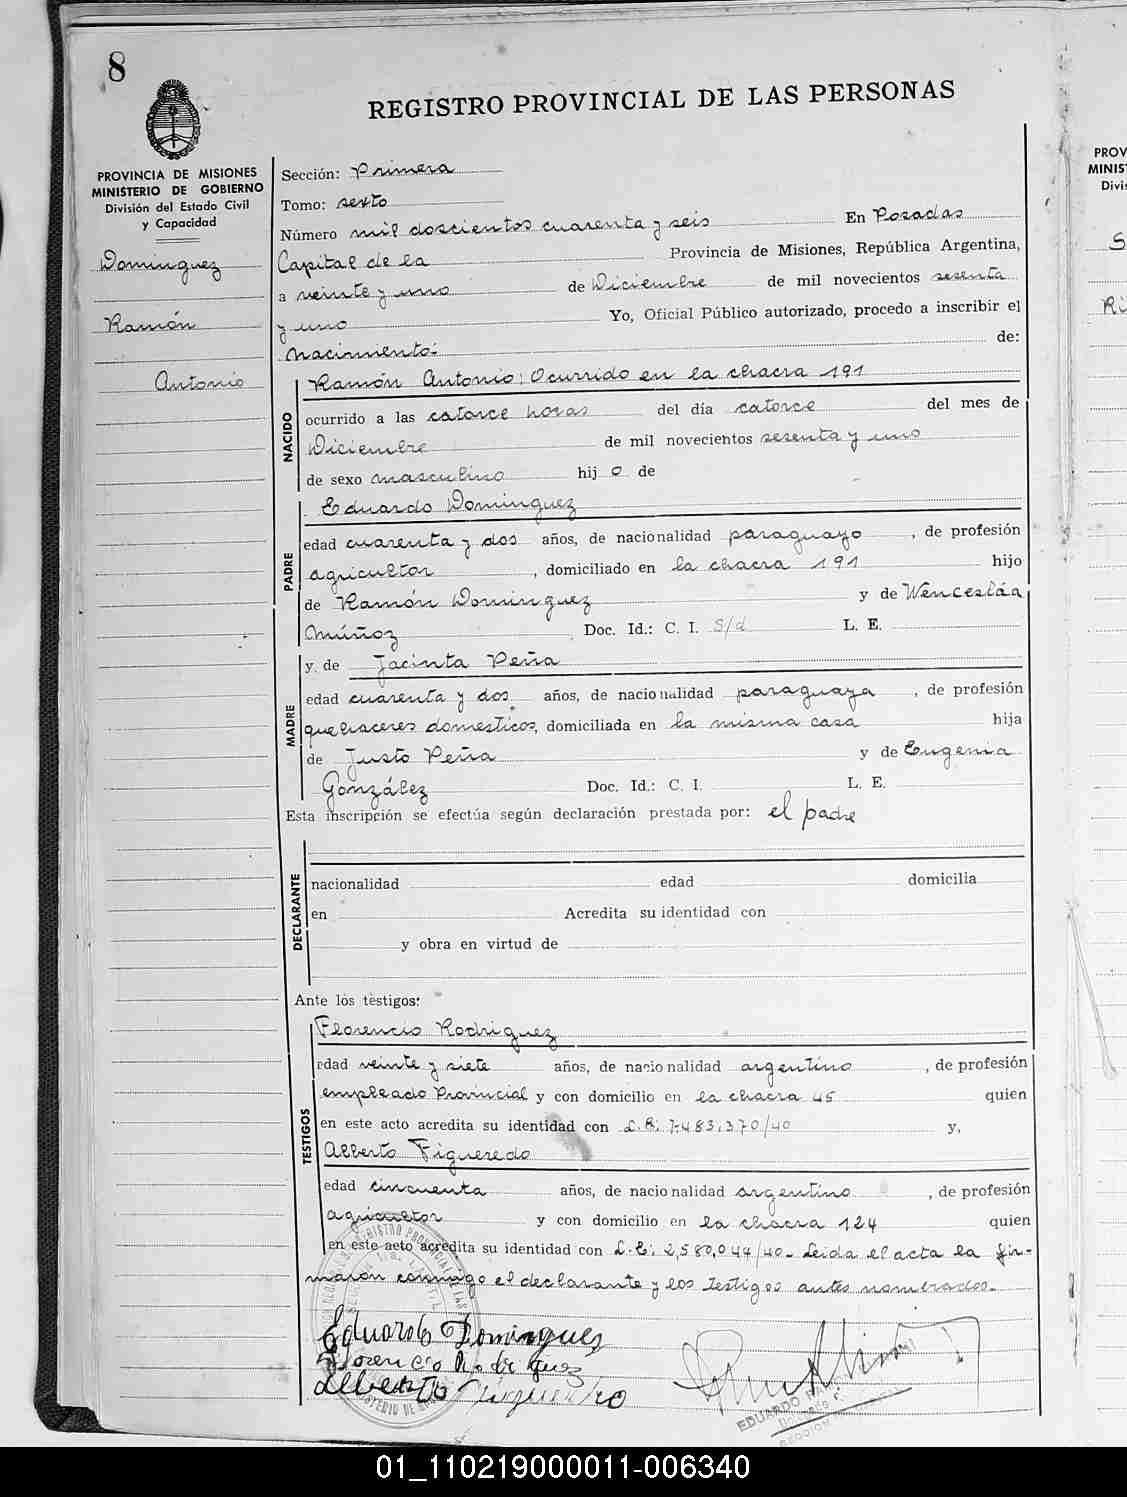 8
REGISTRO PROVINCIAL DE LAS PERSONAS
PROVINCIA DE MISIONES
MINISTERIO DE GOBIERNO
División del Estado Civil
y Capacidad
Dominguez
Ramón
Antonio
Sección: Primera
Tomo: sexto
Número mil doscientos cuarenta y seis En Posadas
Capital de la Provincia de Misiones, República Argentina,
a veinte y uno de Diciembre de mil novecientos sesenta
y uno Yo, Oficial Público autorizado, procedo a inscribir el
nacimiento: de:
NACIDO
Ramón Antonio: Ocurrido en la chacra 191
ocurrido a las catorce horas del día catorce del mes de
Diciembre de mil novecientos sesenta y uno
de sexo masculino hij o de
PADRE
Eduardo Dominguez
edad cuarenta y dos años, de nacionalidad paraguayo, de profesión
agricultor, domiciliado en la chacra 191 hijo
de Ramón Dominguez y de Wencesláa
Múñoz Doc. Id.: C. I. S/d L. E.
MADRE
y de Jacinta Peña
edad cuarenta y dos años, de nacionalidad paraguaya, de profesión
quehaceres domesticos, domiciliada en la misma casa hija
de Justo Peña y de Eugenia
González Doc. Id.: C. I. L. E.
Esta inscripción se efectúa según declaración prestada por: el padre
DECLARANTE
nacionalidad edad domicilia
en Acredita su identidad con
y obra en virtud de
Ante los testigos:
TESTIGOS
Florencio Rodriguez
edad veinte y siete años, de nacionalidad argentino, de profesión
empleado Provincial y con domicilio en la chacra 45 quien
en este acto acredita su identidad con L.E: 7.483.370/40 y,
Alberto Figueredo
edad cincuenta años, de nacionalidad argentino, de profesión
agricultor y con domicilio en la chacra 124 quien
en este acto acredita su identidad con L.E: 2,580,044/40- Leida el acta la fir-
maron conmigo el declarante y los testigos antes nombrados.-
Eduardo Dominguez
Florencio Rodriguez
Alberto Figueredo
EDUARDO
01_110219000011-006340